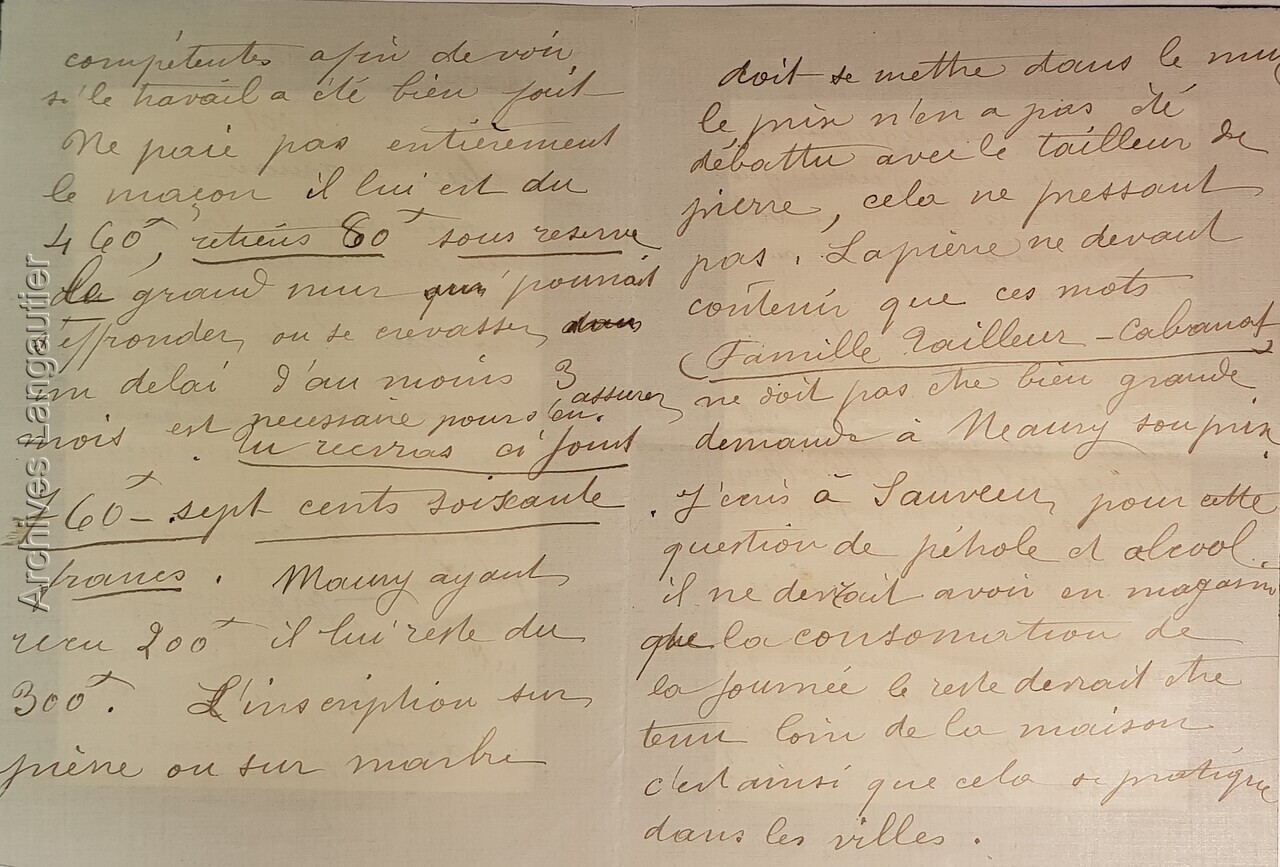 compétentes afin de voir
si le travail a été bien fait
Ne paie pas entièrement
le maçon il lui est du
460f, retiens 80f sous reserve
le grand mur qui pourrait
s'effronder, ou se crevasser, dans
un delai d'au moins 3
mois est necessaire pour s'en assurer,
. Tu recevras ci joint
760f - sept cents soixante
francs. Maury ayant
recu 200f il lui reste du
300f. L'inscription sur
pierre ou sur marbre
doit se mettre dans le mur
le prix n'en a pas été
débattu avec le tailleur de
pierre, cela ne pressant
pas. La pierre ne devant
contenir que ces mots
(Famille Tailleur - Cabanat)
ne doit pas être bien grande
demande à Maury son prix.
. J'écris à Sauveur, pour cette
question de pétrole et alcool
il ne devrait avoir en magasin
que la consomation de
la journée le reste devrait etre
tenu loin de la maison
c'est ainsi que cela se pratique
dans les villes.
Archives Langautier